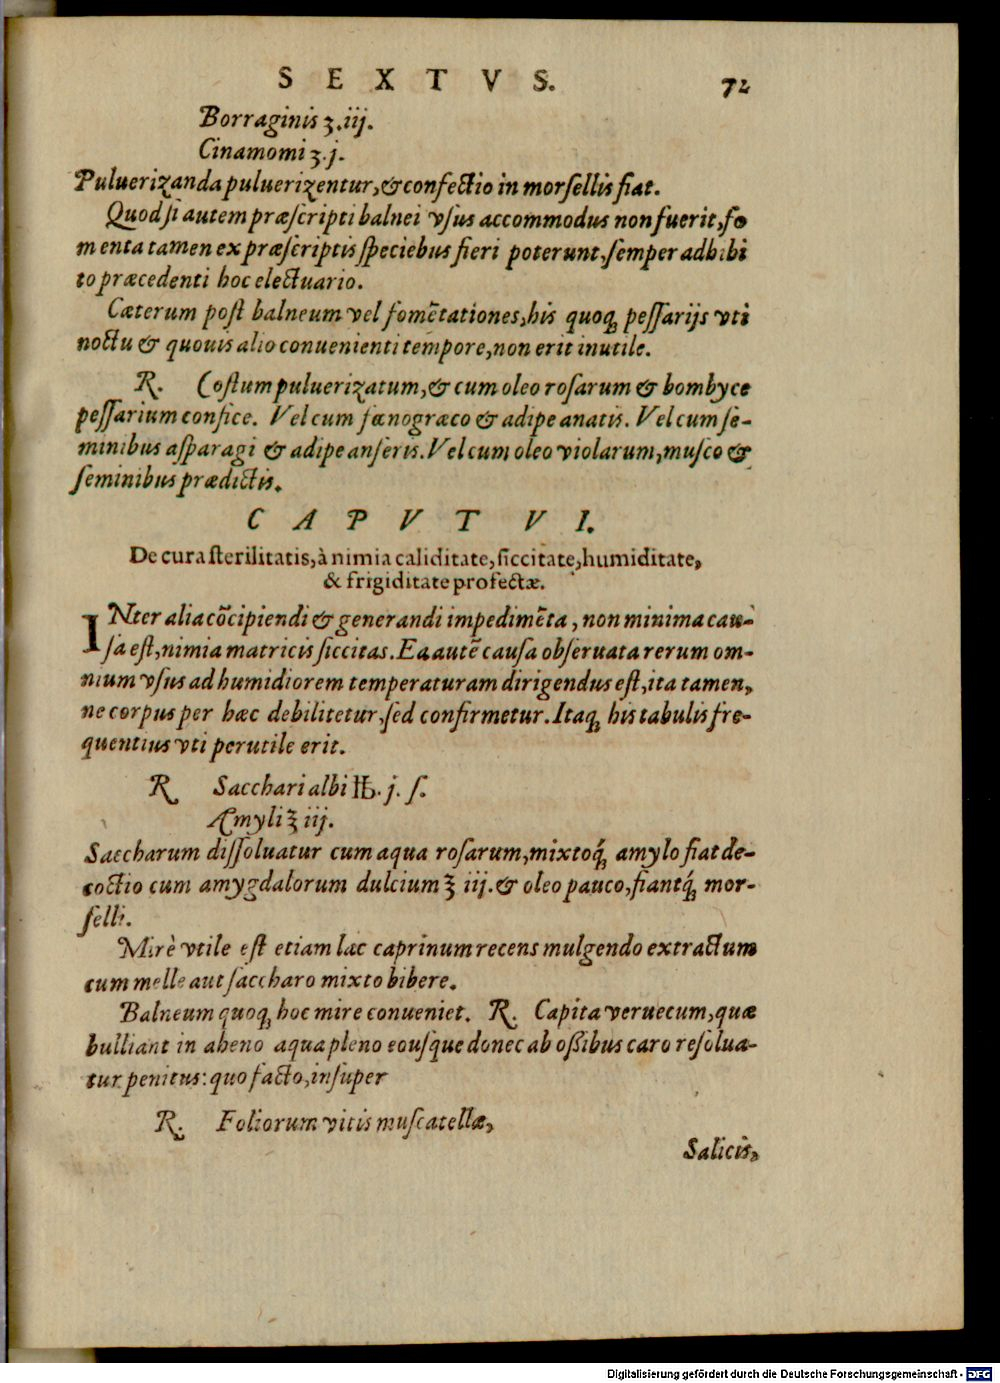 SEXTVS. 72
Borraginis ʒ.iij.
Cinamomi ʒ.j.
Puluerizanda puluerizentur, & confectio in morſellis fiat.
Quod ſi autem præſcripti balnei vſus accommodus non fuerit, fo
menta tamen ex præſcriptis ſpeciebus fieri poterunt, ſemper adhibi
to præcedenti hoc electuario.
Cæterum poſt balneum vel fomētationes, his quoq; peſſarijs vti
noctu & quouis alio conuenienti tempore, non erit inutile.
R. Coſtum puluerizatum, & cum oleo roſarum & bombyce
peſſarium confice. Vel cum fœnogræco & adipe anatis. Vel cum ſe-
minibus aſparagi & adipe anſeris. Vel cum oleo violarum, muſco &
ſeminibus prædictis.
CAPVT VI.
De cura ſterilitatis, à nimia caliditate, ſiccitate, humiditate,
& frigiditate profectæ.
INter alia cōcipiendi & generandi impedimēta, non minima cau-
ſa eſt, nimia matricis ſiccitas. Ea autē cauſa obſeruata rerum om-
nium vſus ad humidiorem temperaturam dirigendus eſt, ita tamen,
ne corpus per hæc debilitetur, ſed confirmetur. Itaq; his tabulis fre-
quentius vti perutile erit.
R. Sacchari albi ℔. j. ſ.
Amyli ℥ iij.
Saccharum diſſoluatur cum aqua roſarum, mixtoq́; amylo fiat de-
coctio cum amygdalorum dulcium ℥ iij. & oleo pauco, fiantq́; mor-
ſelli.
Mirè vtile eſt etiam lac caprinum recens mulgendo extractum
cum melle aut ſaccharo mixto bibere.
Balneum quoq; hoc mire conueniet. R. Capita veruecum, quæ
bulliant in aheno aqua pleno eouſque donec ab oßibus caro reſolua-
tur penitus: quo facto, inſuper
R. Foliorum vitis muſcatellæ,
Salicis,
Digitalisierung gefördert durch die Deutsche Forschungsgemeinschaft - DFG